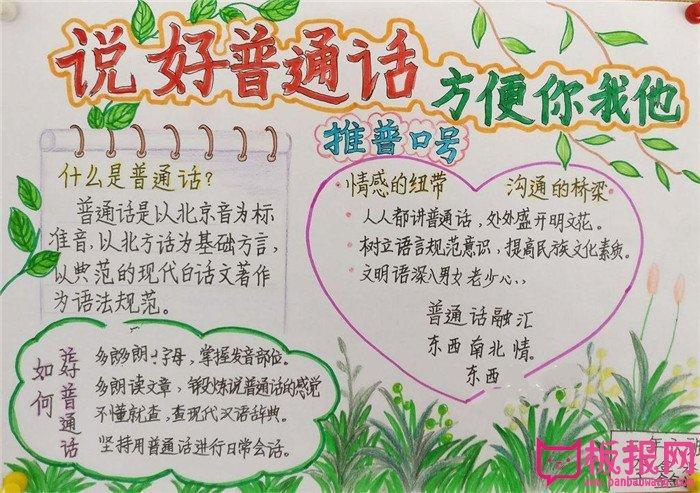 说好普通话
方便你我他
推普口号
什么是普通话?
普通话是以北京音为标
准音,以北方话为基础方言,
以典范的现代白话文著作
为语法规范。
·情感的纽带 沟通的桥梁。
·人人都讲普通话,处处盛开明文花。
·树立语言规范意识,提高民族文化素质。
·文明语深入男女老少心
普通话融汇
东西南北情。
东西
如何
好普通话
多朗 字母,掌握发音部位。
多朗读文章,锻炼说普通话的感觉
不懂就查,查现代汉语辞典。
坚持用普通话进行日常会话。
板报网
www.banbaowang.com